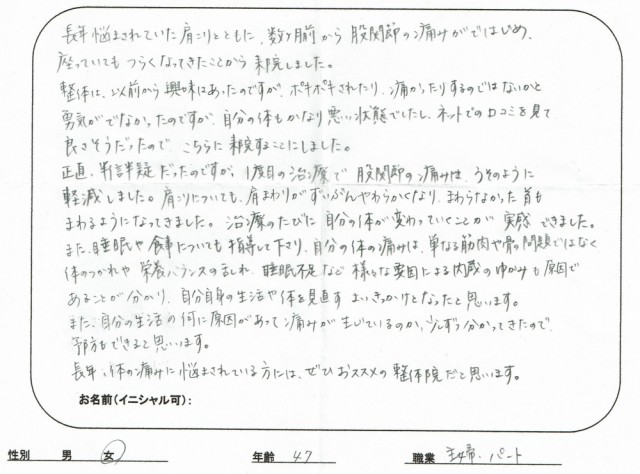 長年悩まされていた肩こりとともに、数ヶ月前から股関節の痛みがではじめ、
座っていてもつらくなってきたことから来院しました。
整体は、以前から興味はあったのですが、ボキボキされたり、痛かったりするのではないかと
勇気がでなかったのですが、自分の体もかなり悪い状態でしたし、ネットでの口コミを見て
良さそうだったので、こちらに来院することにしました。
正直、半信半疑だったのですが、1度目の治療で股関節の痛みは、うそのように
軽減しました。肩こりについても、肩まわりがずいぶんやわらかくなり、まわらなかった首も
まわるようになってきました。治療のたびに自分の体が変わっていくことが実感できました。
また、睡眠や食事についても指導して下り、自分の体の痛みは、単なる筋肉や骨の問題ではなく
体のつかれや栄養バランスの乱れ、睡眠不足など様々な要因による内蔵のゆがみも原因で
あることが分かり、自分自身の生活や体を見直すよいきっかけとなったと思います。
また、自分の生活の何に原因があって痛みが生じているのか、少しずつ分かってきたので、
予防もできると思います。
長年、体の痛みに悩まされている方には、ぜひおススメの整体院だと思います。
お名前(イニシャル可):
性別 男 女 年齢 47 職業 主婦・パート